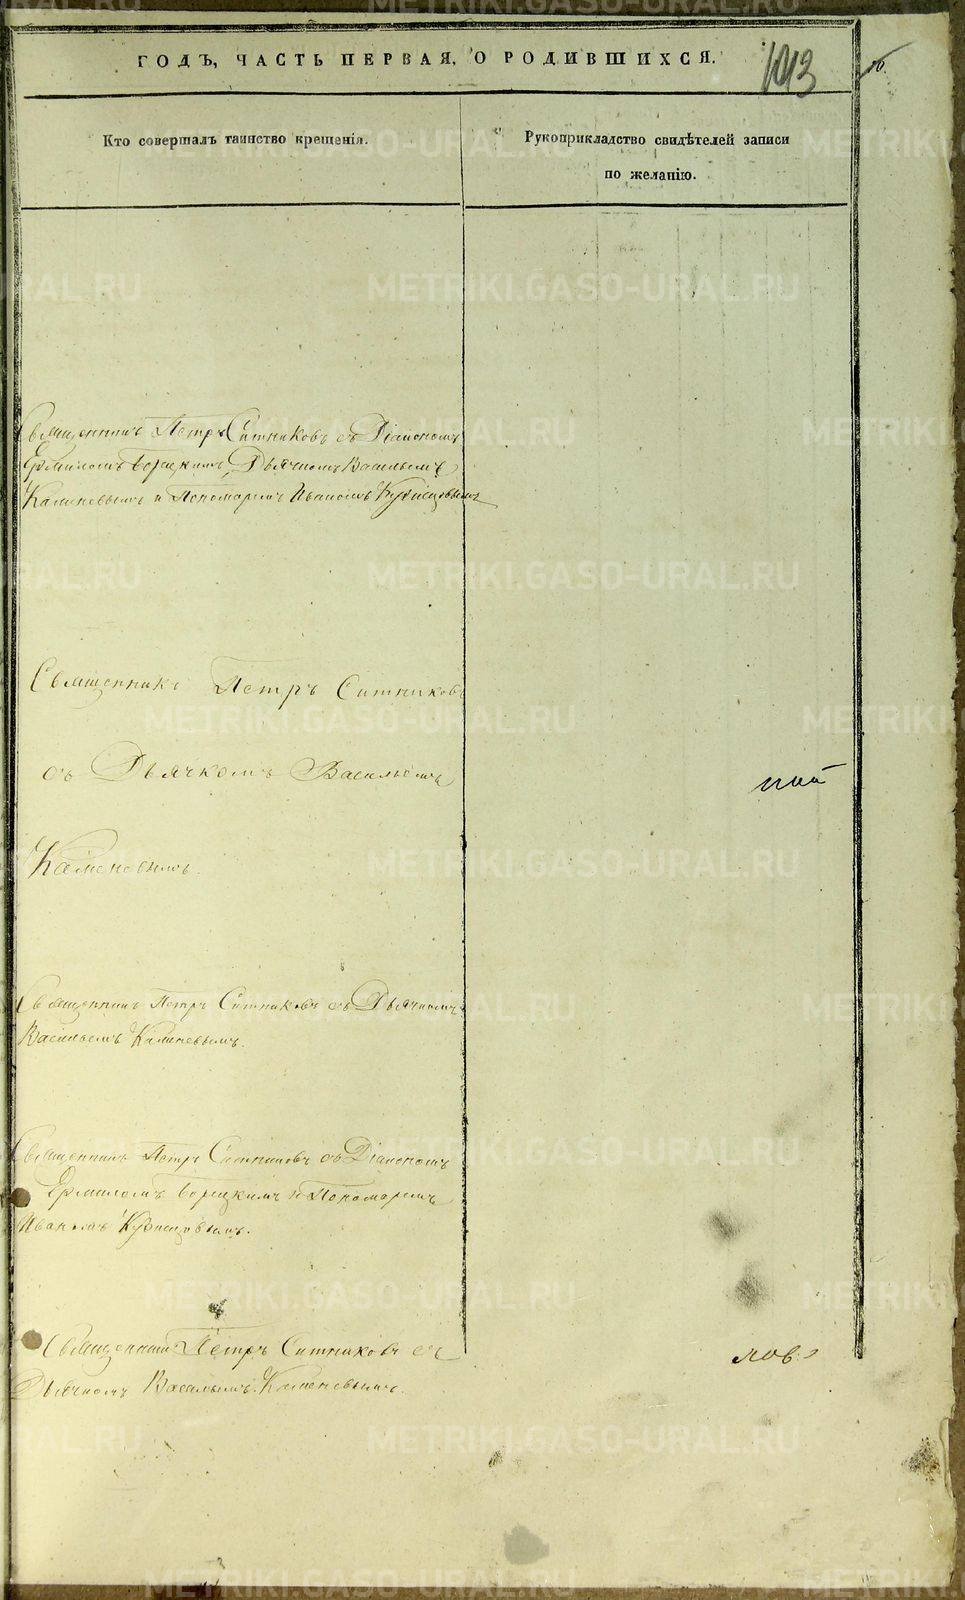 ГОДЪ, ЧАСТЬ ПЕРВАЯ, О РОДИВШИХСЯ.
1013
Кто совершалъ таинство крещенія.
Рукоприкладство свидѣтелей записи
по желанію.
Священникъ Петръ Ситниковъ съ Діакономъ
Ермиломъ Борецкимъ, Дьячкомъ Васильемъ
Каменевымъ и Пономаремъ Иваномъ Кузнецовымъ
Священникъ Петръ Ситниковъ
съ Дьячкомъ Васильемъ
Каменевымъ.
Священникъ Петръ Ситниковъ съ Дьячкомъ
Васильемъ Каменевымъ.
Священникъ Петръ Ситниковъ съ Діакономъ
Ермиломъ Борецкимъ и Пономаремъ
Иваномъ Кузнецовымъ.
Священникъ Петръ Ситниковъ съ
Дьячкомъ Васильемъ Каменевымъ.
METRIKI.GASO-URAL.RU